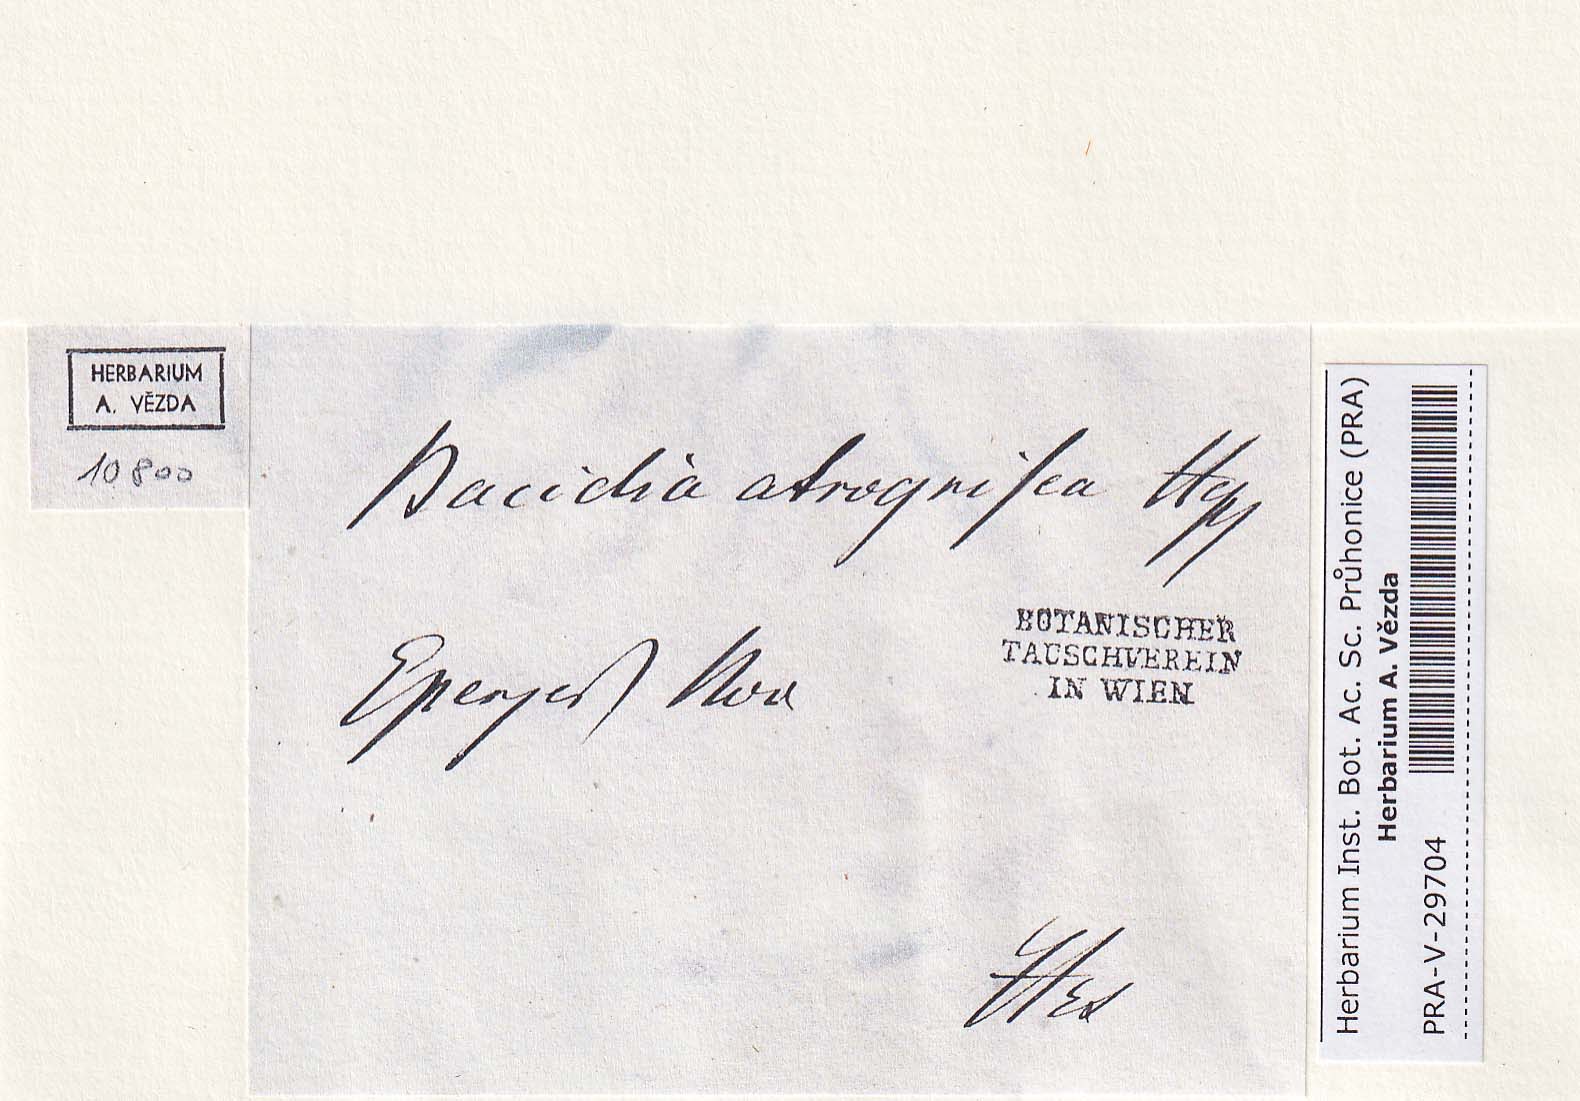 HERBARIUM
A. VĚZDA
10800
Bacidia atrogrisea Hepp
BOTANISCHER
TAUSCHVEREIN
IN WIEN
Eperjes
Herbarium Inst. Bot. Ac. Sc. Průhonice (PRA)
Herbarium A. Vězda
PRA-V-29704